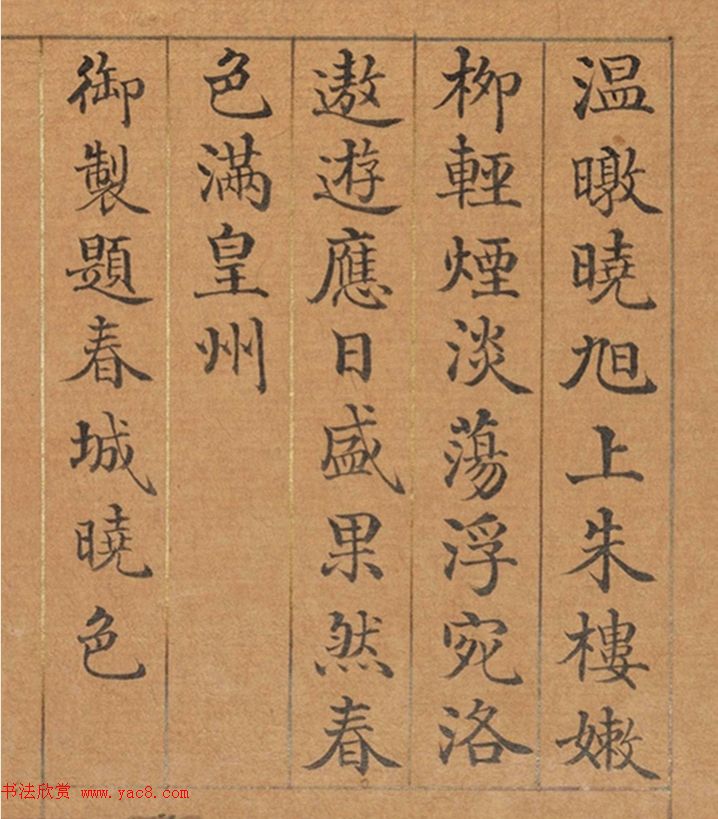 温暾曉旭上朱樓嫩
柳輕煙淡蕩浮宛洛
遨遊應日盛果然春
色滿皇州
御製題春城曉色
书法欣赏 www.yac8.com